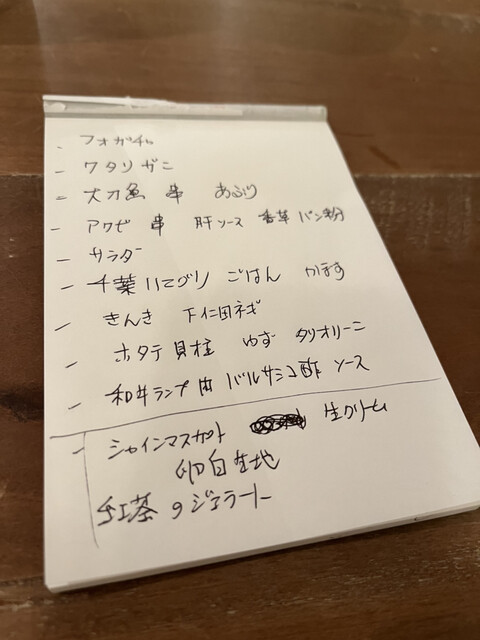 - フォガチャ
- ワタリガニ
- 太刀魚 串 あぶり
- アワビ 串 肝ソース 香草パン粉
- サラダ
- 千葉ハマグリ ごはん かぼす
- きんき 下仁田ネギ
- ホタテ貝柱 ゆず タリオリーニ
- 和牛ランプ肉 バルサミコ酢 ソース
- シャインマスカット 生クリーム
卵白生地
紅茶のジェラート